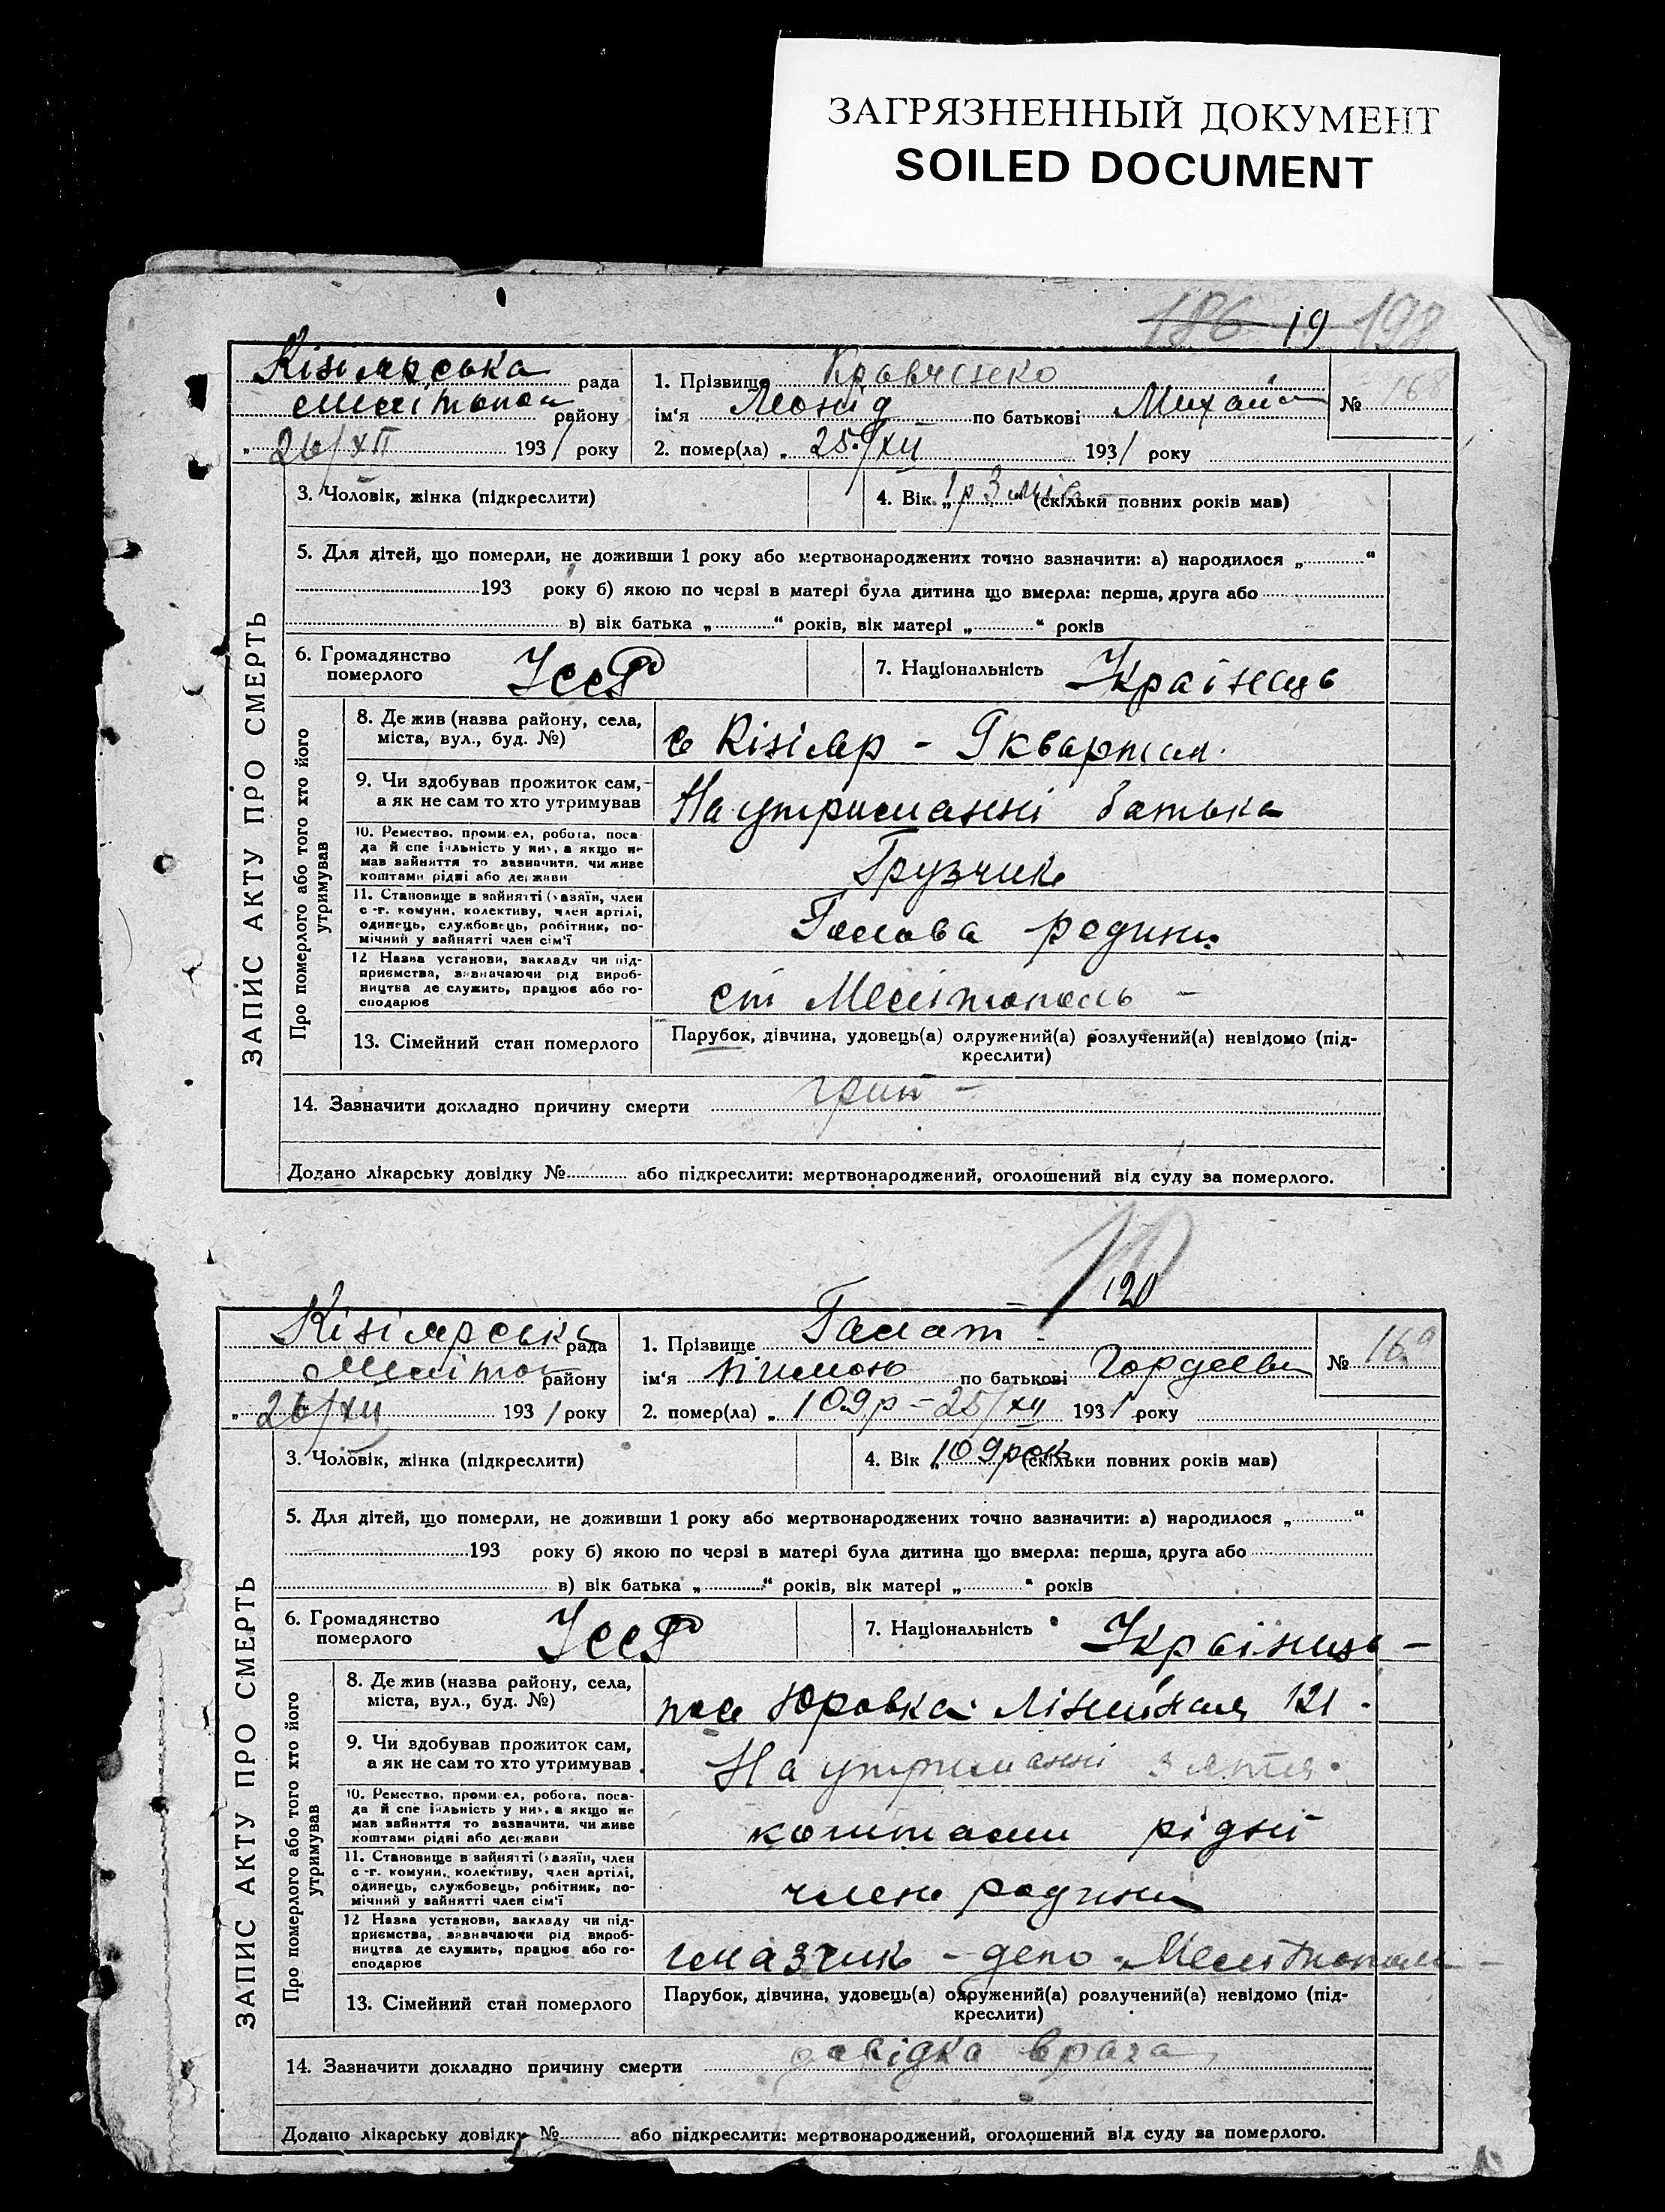 ЗАГРЯЗНЕННЫЙ ДОКУМЕНТ
SOILED DOCUMENT
186 19 198
Кізіярська рада
Меліпопол району
„ 26/XII 1931 року
1. Прізвище Кравченко
ім'я Леонід по батькові Михайл
2. помер(ла) „ 25/XII 1931 року
№ 168
ЗАПИС АКТУ ПРО СМЕРТЬ
3. Чоловік, жінка (підкреслити)
4. Вік „ 1р 3 міс (скільки повних років мав)
5. Для дітей, що померли, не доживши 1 року або мертвонароджених точно зазначити: а) народилося „ “
193 року б) якою по черзі в матері була дитина що вмерла: перша, друга або
в) вік батька „ “ років, вік матері „ “ років
6. Громадянство
померлого
УССР
7. Національність Україньць
Про померлого або того хто його
утримував
8. Де жив (назва району, села,
міста, вул., буд. №)
с Кізіяр - Я квартал.
9. Чи здобував прожиток сам,
а як не сам то хто утримував
На утриманні батька
10. Ремество, промисел, робота, поса-
да й спеціяльність у них, а якщо не
мав зайняття то зазначити, чи живе
коштами рідні або держави
Грузчик
11. Становище в зайнятті (хазяїн, член
с.-г. комуни, колективу, член артілі,
одинець, службовець, робітник, по-
мічний у зайнятті член сім'ї
Голова родини
12 Назва установи, закладу чи під-
приємства, зазначаючи рід вироб-
ництва де служить, працює або го-
сподарює
ст Мелітополь -
13. Сімейний стан померлого
Парубок, дівчина, удовець(а) одружений(а) розлучений(а) невідомо (під-
креслити)
14. Зазначити докладно причину смерти грип -
Додано лікарську довідку № або підкреслити: мертвонароджений, оголошений від суду за померлого.
120
Кізіярська рада
Меліто району
„ 26/XII 1931 року
1. Прізвище Галат
ім'я по батькові Гордеев
2. помер(ла) „ 109р - 25/XII 1931 року
№ 169
ЗАПИС АКТУ ПРО СМЕРТЬ
3. Чоловік, жінка (підкреслити)
4. Вік „ 109 рок (скільки повних років мав)
5. Для дітей, що померли, не доживши 1 року або мертвонароджених точно зазначити: а) народилося „ “
193 року б) якою по черзі в матері була дитина що вмерла: перша, друга або
в) вік батька „ “ років, вік матері „ “ років
6. Громадянство
померлого
УССР
7. Національність Українць -
Про померлого або того хто його
утримував
8. Де жив (назва району, села,
міста, вул., буд. №)
пос Юровка Лінейная 121.
9. Чи здобував прожиток сам,
а як не сам то хто утримував
На утриманні зятя.
10. Ремество, промисел, робота, поса-
да й спеціяльність у них, а якщо не
мав зайняття то зазначити, чи живе
коштами рідні або держави
коштами рідні
11. Становище в зайнятті (хазяїн, член
с.-г. комуни, колективу, член артілі,
одинець, службовець, робітник, по-
мічний у зайнятті член сім'ї
член родини
12 Назва установи, закладу чи під-
приємства, зазначаючи рід вироб-
ництва де служить, працює або го-
сподарює
смазчик - депо Мелітополь -
13. Сімейний стан померлого
Парубок, дівчина, удовець(а) одружений(а) розлучений(а) невідомо (під-
креслити)
14. Зазначити докладно причину смерти довідка врача
Додано лікарську довідку № або підкреслити: мертвонароджений, оголошений від суду за померлого.